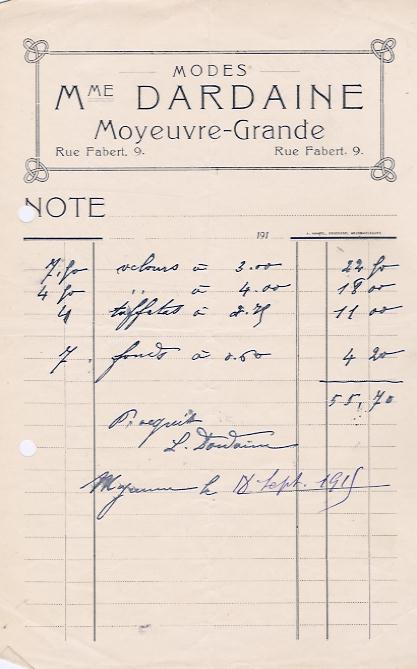 MODES
MME DARDAINE
Moyeuvre-Grande
Rue Fabert. 9. Rue Fabert. 9.
NOTE
191
7.50 velours à 3.00 22 50
4 50 " à 4.00 18 00
4 taffetas à 2.75 11 00
7. fonds à 0.60 4 20
55,70
P. acquit
L. Dardaine
Moyeuvre le 18 Sept. 1915